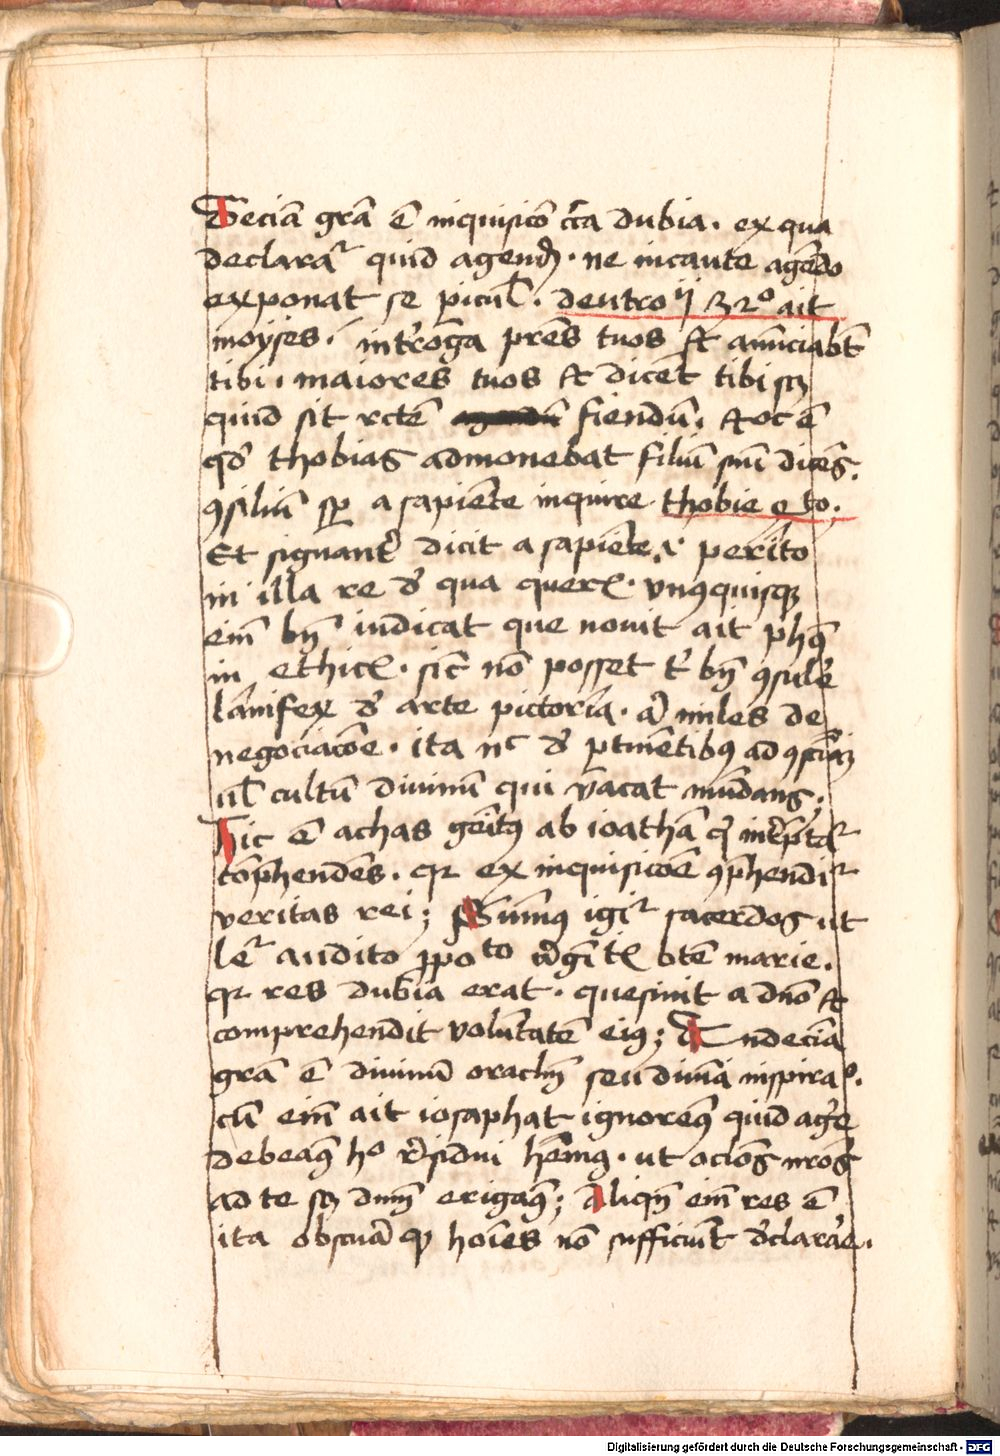 Deciā grā ē inquisicō cc̄a dubia. ex qua
declarat᷑ quid agend̄. ne incaute agēdo
exponat se picul̄. deutroij 32º ait
moyses. int̄roga pr̄es tuos et anūciabt̄
tibi. maiores tuos et dicēt tibi sꝫ
quid sit rctē fiendū. et oc ē
qd̄ thobias admonebat filiū suū dicēs.
ꝯsiliū sp̄ a sapiēte inquire. thobie qto.
Et signant̄ dicit a sapiēte .i. perito
in illa re d̄ qua querit᷑. vnꝰquisqꝫ
eīm bn̄ iudicat que nouit ait ph̄us
in ethic᷑. sic̄ nō posset t̄ bn̄ ꝯsule̅
lānifex d̄ arte pictoria. ā miles de
negociacōe. ita nc̄ d̄ ꝑtinētibꝰ ad ꝯsciāꝫ
ul̄ cultū diuinū qui vacat mūdanis;
Hic ē achas gēitꝰ ab ioathā q̄ int̄p̄tat᷑
cōp̄hendēs. qꝛ ex inquisicōe ꝯp̄hendit᷑
veritas rei; Summꝰ igit᷑ sacerdos ut
let᷑ audito ꝓpoto v̄gīit᷑ btē marie.
qꝛ res dubia erat. quesiuit a dn̄o et
comprehendit volūtatē eiꝰ; Undeciā
grā ē diuinū oraclm̄ seu diuīa inspiraº.
cū eīm ait iosaphat ignoremꝰ quid age̅
debeamꝰ hº r̄sidui hēmꝰ. ut oclōs nr̄os
ad te sꝫ dnm̄ erigamꝰ; Aliqn̄ eīm res ē
ita obscuā qꝫ hoīes nō sufficiūt d̄clarāe.
Digitalisierung gefördert durch die Deutsche Forschungsgemeinschaft - DFG